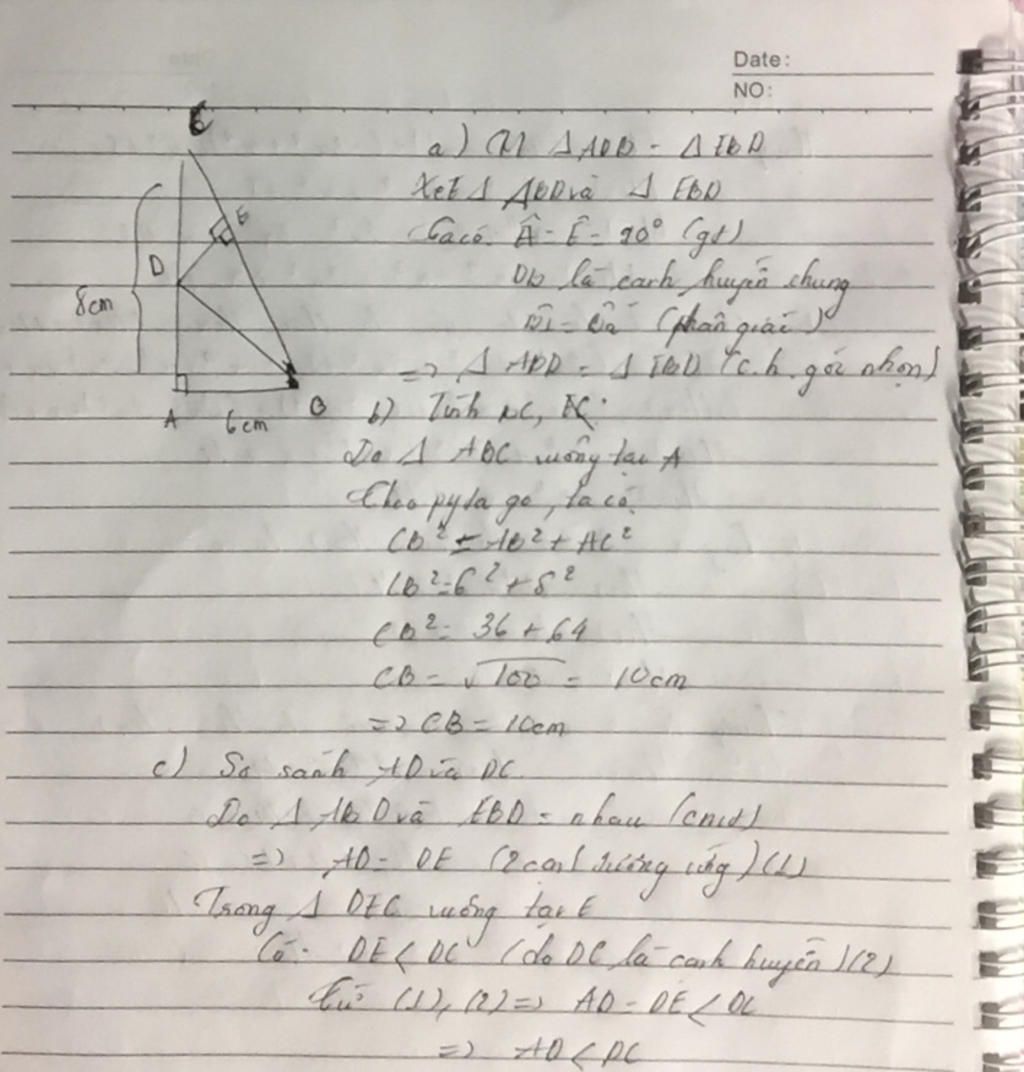 Date:
NO:
C
E
D
8cm
A
6cm
B
a) CM Δ ABD = Δ EBD
Xét Δ ABD và Δ EBD
Ta có: Â = Ê = 90° (gt)
DB là cạnh huyền chung
(phân giác)
=> Δ ABD = Δ EBD (c.h. góc nhọn)
b) Tính BC, EC:
Do Δ ABC vuông tại A
Theo pytago, ta có:
CB² = AB² + AC²
CB² = 6² + 8²
CB² = 36 + 64
CB = √100 = 10cm
=> CB = 10cm
c) So sánh AD và DC
Do Δ ABD và EBD = nhau (cmt)
=> AD = DE (2 cạnh tương ứng) (1)
Trong Δ DEC vuông tại E
Có: DE < DC (do DC là cạnh huyền) (2)
Từ (1), (2) => AD = DE < DC
=> AD < DC